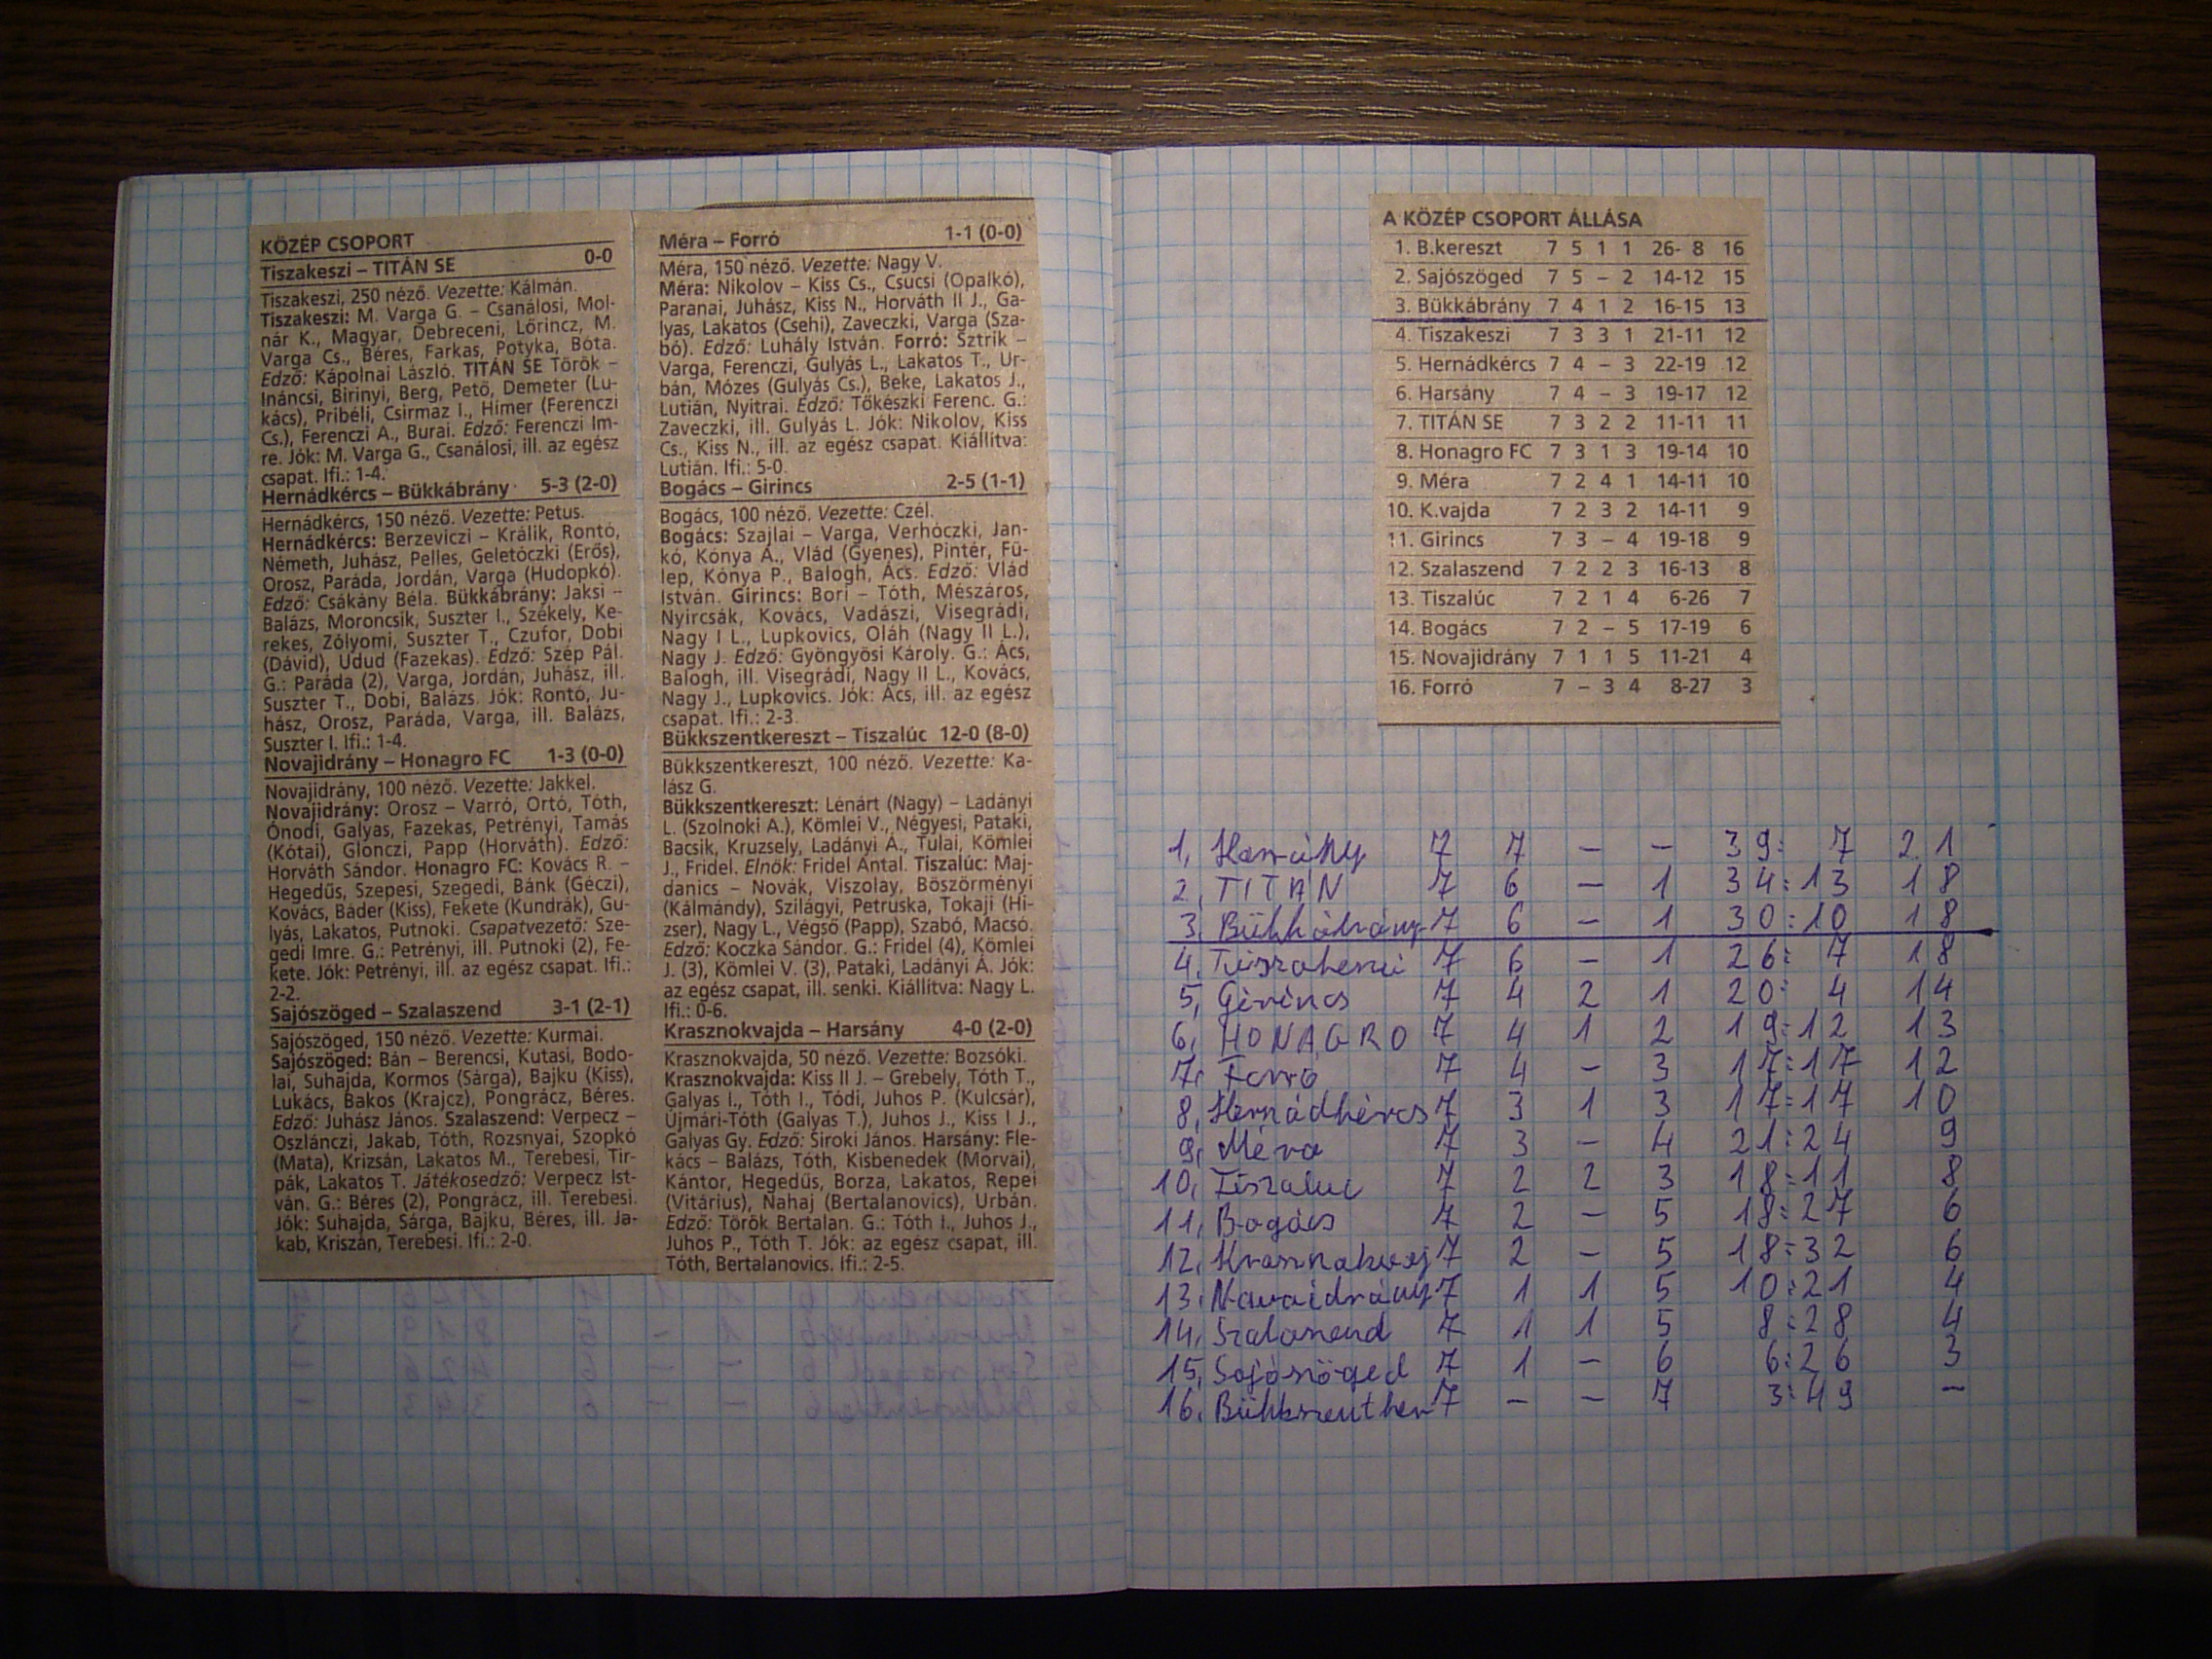 KÖZÉP CSOPORT
Tiszakeszi – TITÁN SE 0-0
Tiszakeszi, 250 néző. Vezette: Kálmán.
Tiszakeszi: M. Varga G. – Csanálosi, Mol-
nár K., Magyar, Debreceni, Lőrincz, M.
Varga Cs., Béres, Farkas, Potyka, Bóta.
Edző: Kápolnai László. TITÁN SE Török –
Ináncsi, Birinyi, Berg, Pető, Demeter (Lu-
kács), Pribéli, Csirmaz I., Hímer (Ferenczi
Cs.), Ferenczi A., Burai. Edző: Ferenczi Im-
re. Jók: M. Varga G., Csanálosi, ill. az egész
csapat. Ifi.: 1-4.
Hernádkércs – Bükkábrány 5-3 (2-0)
Hernádkércs, 150 néző. Vezette: Petus.
Hernádkércs: Berzeviczi – Králik, Rontó,
Németh, Juhász, Pelles, Geletóczki (Erős),
Orosz, Paráda, Jordán, Varga (Hudopkó).
Edző: Csákány Béla. Bükkábrány: Jaksi –
Balázs, Moroncsik, Suszter I., Székely, Ke-
rekes, Zólyomi, Suszter T., Czufor, Dobi
(Dávid), Udud (Fazekas). Edző: Szép Pál.
G.: Paráda (2), Varga, Jordán, Juhász, ill.
Suszter T., Dobi, Balázs. Jók: Rontó, Ju-
hász, Orosz, Paráda, Varga, ill. Balázs,
Suszter I. Ifi.: 1-4.
Novajidrány – Honagro FC 1-3 (0-0)
Novajidrány, 100 néző. Vezette: Jakkel.
Novajidrány: Orosz – Varró, Ortó, Tóth,
Ónodi, Galyas, Fazekas, Petrényi, Tamás
(Kótai), Glonczi, Papp (Horváth). Edző:
Horváth Sándor. Honagro FC: Kovács R. –
Hegedűs, Szepesi, Szegedi, Bánk (Géczi),
Kovács, Báder (Kiss), Fekete (Kundrák), Gu-
lyás, Lakatos, Putnoki. Csapatvezető: Sze-
gedi Imre. G.: Petrényi, ill. Putnoki (2), Fe-
kete. Jók: Petrényi, ill. az egész csapat. Ifi.:
2-2.
Sajószöged – Szalaszend 3-1 (2-1)
Sajószöged, 150 néző. Vezette: Kurmai.
Sajószöged: Bán – Berencsi, Kutasi, Bodo-
lai, Suhajda, Kormos (Sárga), Bajku (Kiss),
Lukács, Bakos (Krajcz), Pongrácz, Béres.
Edző: Juhász János. Szalaszend: Verpecz –
Oszlánczi, Jakab, Tóth, Rozsnyai, Szopkó
(Mata), Krizsán, Lakatos M., Terebesi, Tir-
pák, Lakatos T. Játékosedző: Verpecz Ist-
ván. G.: Béres (2), Pongrácz, ill. Terebesi.
Jók: Suhajda, Sárga, Bajku, Béres, ill. Ja-
kab, Kriszán, Terebesi. Ifi.: 2-0.
Méra – Forró 1-1 (0-0)
Méra, 150 néző. Vezette: Nagy V.
Méra: Nikolov – Kiss Cs., Csucsi (Opalkó),
Paranai, Juhász, Kiss N., Horváth II J., Ga-
lyas, Lakatos (Csehi), Zaveczki, Varga (Sza-
bó). Edző: Luhály István. Forró: Sztrik –
Varga, Ferenczi, Gulyás L., Lakatos T., Ur-
bán, Mózes (Gulyás Cs.), Beke, Lakatos J.,
Lutián, Nyitrai. Edző: Tőkészki Ferenc. G.:
Zaveczki, ill. Gulyás L. Jók: Nikolov, Kiss
Cs., Kiss N., ill. az egész csapat. Kiállítva:
Lutián. Ifi.: 5-0.
Bogács – Girincs 2-5 (1-1)
Bogács, 100 néző. Vezette: Czél.
Bogács: Szajlai – Varga, Verhóczki, Jan-
kó, Kónya Á., Vlád (Gyenes), Pintér, Fü-
lep, Kónya P., Balogh, Ács. Edző: Vlád
István. Girincs: Bori – Tóth, Mészáros,
Nyircsák, Kovács, Vadászi, Visegrádi,
Nagy I L., Lupkovics, Oláh (Nagy II L.),
Nagy J. Edző: Gyöngyösi Károly. G.: Ács,
Balogh, ill. Visegrádi, Nagy II L., Kovács,
Nagy J., Lupkovics. Jók: Ács, ill. az egész
csapat. Ifi.: 2-3.
Bükkszentkereszt – Tiszalúc 12-0 (8-0)
Bükkszentkereszt, 100 néző. Vezette: Ka-
lász G.
Bükkszentkereszt: Lénárt (Nagy) – Ladányi
L. (Szolnoki A.), Kömlei V., Négyesi, Pataki,
Bacsik, Kruzsely, Ladányi Á., Tulai, Kömlei
J., Fridel. Elnök: Fridel Antal. Tiszalúc: Maj-
danics – Novák, Viszolay, Böszörményi
(Kálmándy), Szilágyi, Petruska, Tokaji (Hi-
zser), Nagy L., Végső (Papp), Szabó, Macsó.
Edző: Koczka Sándor. G.: Fridel (4), Kömlei
J. (3), Kömlei V. (3), Pataki, Ladányi Á. Jók:
az egész csapat, ill. senki. Kiállítva: Nagy L.
Ifi.: 0-6.
Krasznokvajda – Harsány 4-0 (2-0)
Krasznokvajda, 50 néző. Vezette: Bozsóki.
Krasznokvajda: Kiss II J. – Grebely, Tóth T.,
Galyas I., Tóth I., Tódi, Juhos P. (Kulcsár),
Újmári-Tóth (Galyas T.), Juhos J., Kiss I J.,
Galyas Gy. Edző: Siroki János. Harsány: Fle-
kács – Balázs, Tóth, Kisbenedek (Morvai),
Kántor, Hegedűs, Borza, Lakatos, Repei
(Vitárius), Nahaj (Bertalanovics), Urbán.
Edző: Török Bertalan. G.: Tóth I., Juhos J.,
Juhos P., Tóth T. Jók: az egész csapat, ill.
Tóth, Bertalanovics. Ifi.: 2-5.
A KÖZÉP CSOPORT ÁLLÁSA
1. B.kereszt 7 5 1 1 26- 8 16
2. Sajószöged 7 5 – 2 14-12 15
3. Bükkábrány 7 4 1 2 16-15 13
4. Tiszakeszi 7 3 3 1 21-11 12
5. Hernádkércs 7 4 – 3 22-19 12
6. Harsány 7 4 – 3 19-17 12
7. TITÁN SE 7 3 2 2 11-11 11
8. Honagro FC 7 3 1 3 19-14 10
9. Méra 7 2 4 1 14-11 10
10. K.vajda 7 2 3 2 14-11 9
11. Girincs 7 3 – 4 19-18 9
12. Szalaszend 7 2 2 3 16-13 8
13. Tiszalúc 7 2 1 4 6-26 7
14. Bogács 7 2 – 5 17-19 6
15. Novajidrány 7 1 1 5 11-21 4
16. Forró 7 – 3 4 8-27 3
1, Harsány 7 7 – – 39: 7 21
2, TITÁN 7 6 – 1 34:13 18
3, Bükkábrány 7 6 – 1 30:10 18
4, Tiszakeszi 7 6 – 1 26: 7 18
5, Girincs 7 4 2 1 20: 4 14
6, HONAGRO 7 4 1 2 19:12 13
7, Forró 7 4 – 3 17:17 12
8, Hernádkércs 7 3 1 3 17:17 10
9, Méra 7 3 – 4 21:24 9
10, Tiszaluc 7 2 2 3 18:11 8
11, Bogács 7 2 – 5 18:27 6
12, Krasznokvaj 7 2 – 5 18:32 6
13, Novaidrány 7 1 1 5 10:21 4
14, Szalaszend 7 1 1 5 8:28 4
15, Sajószöged 7 1 – 6 6:26 3
16, Bükkszentker 7 – – 7 3:49 –